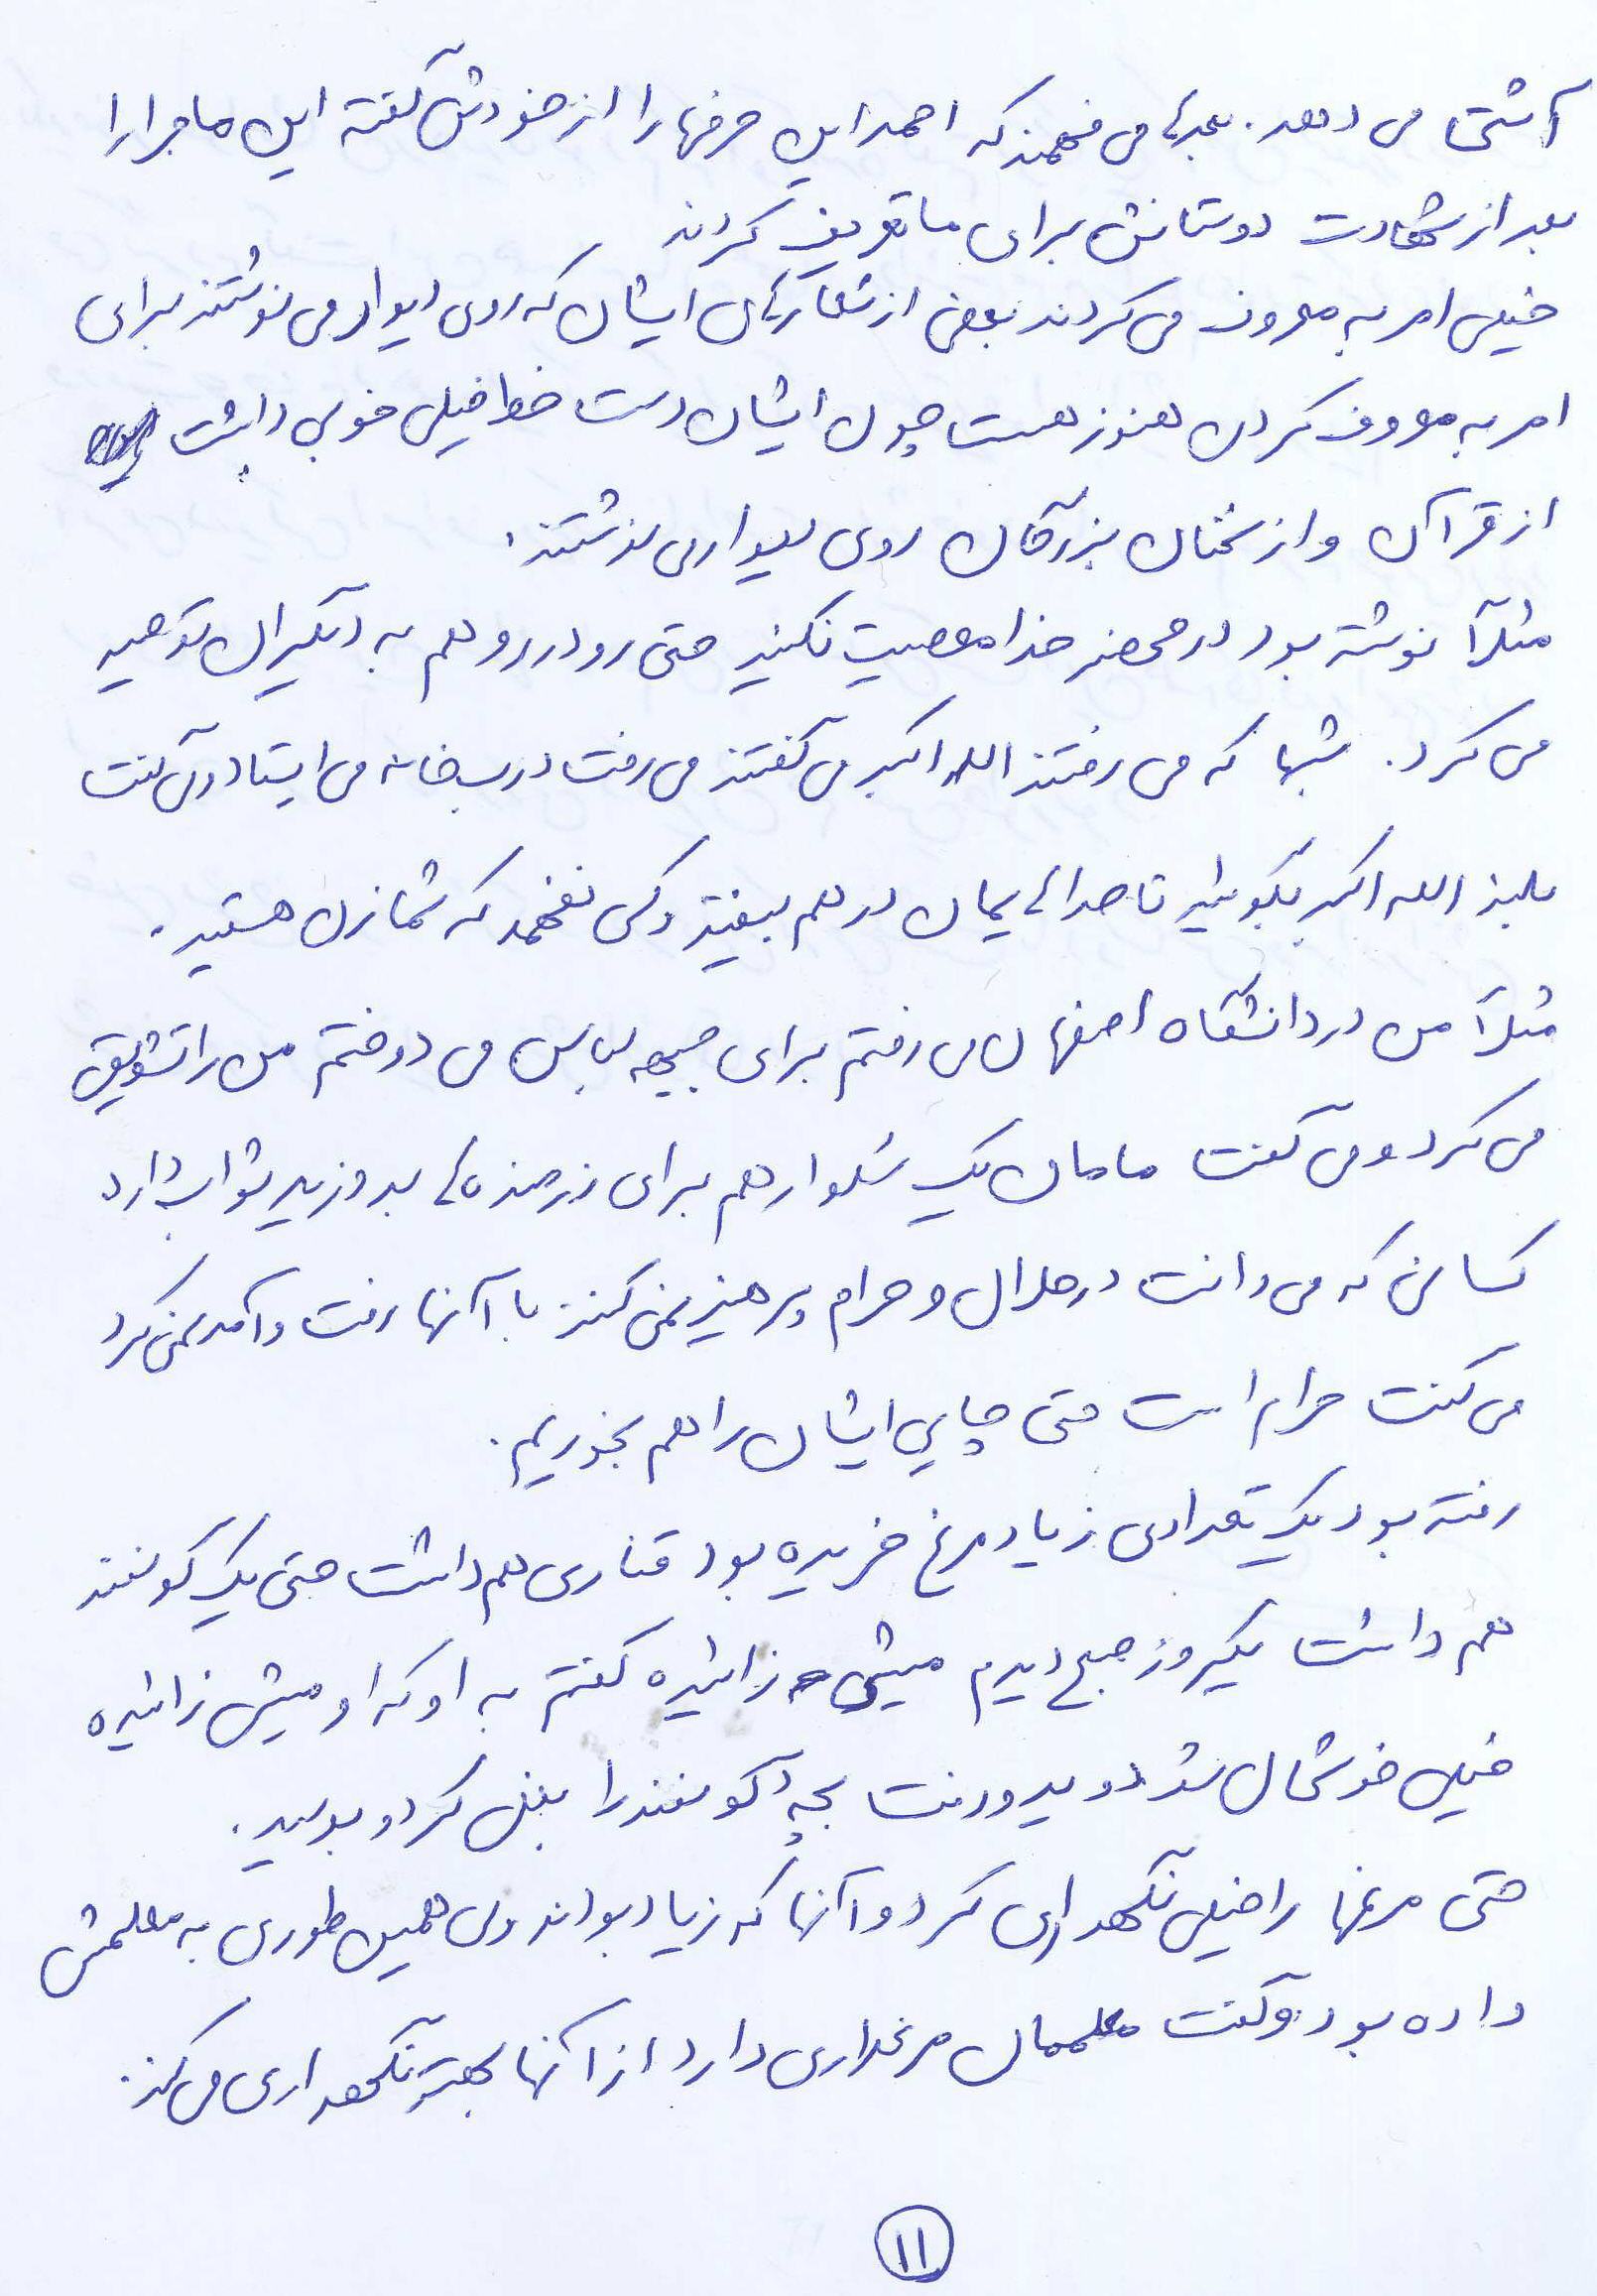 آشتی می دهد. بعدها می فهمند که احمد این حرفها را از خودش گفته این ماجرا را
بعد از شهادت دوستانش برای ما تعریف کردند
خیلی امر به معروف می کردند بعضی از شعارهای ایشان که روی دیوار می نوشتند برای
امر به معروف کردن هنوز هست چون ایشان دست خط خیلی خوبی داشت
از قرآن و از سخنان بزرگان روی دیوار می نوشتند.
مثلاً نوشته بود در محضر خدا معصیت نکنید حتی رو در رو هم به دیگران توصیه
می کرد. شبها که می رفتند الله اکبر می گفتند می رفت درب خانه می ایستاد و می گفت
بلند الله اکبر بگوئید تا صداهایمان در هم بیفتد و کسی نفهمد که شما زن هستید.
مثلاً من در دانشگاه اصفهان می رفتم برای جبهه لباس می دوختم من را تشویق
می کرد و می گفت مامان یک شلوار هم برای رزمنده ها بدوزید ثواب دارد
کسانی که می دانست در حلال و حرام پرهیز نمی کنند با آنها رفت و آمد نمی کرد
می گفت حرام است حتی چایی ایشان را هم بخوریم.
رفته بود یک تعدادی زیاد مرغ خریده بود قناری هم داشت حتی یک گوسفند
هم داشت یکروز صبح دیدم میش زائیده گفتم به او که او میش زائیده
خیلی خوشحال شد دوید و رفت بچه گوسفند را بغل کرد و بوسید.
حتی مرغها را خیلی نگهداری کرد و آنها که زیاد بودند ولی همین طوری به معلمش
داده بود و گفت معلممان مرغداری دارد از آنها بهتر نگهداری می کند.
۱۱